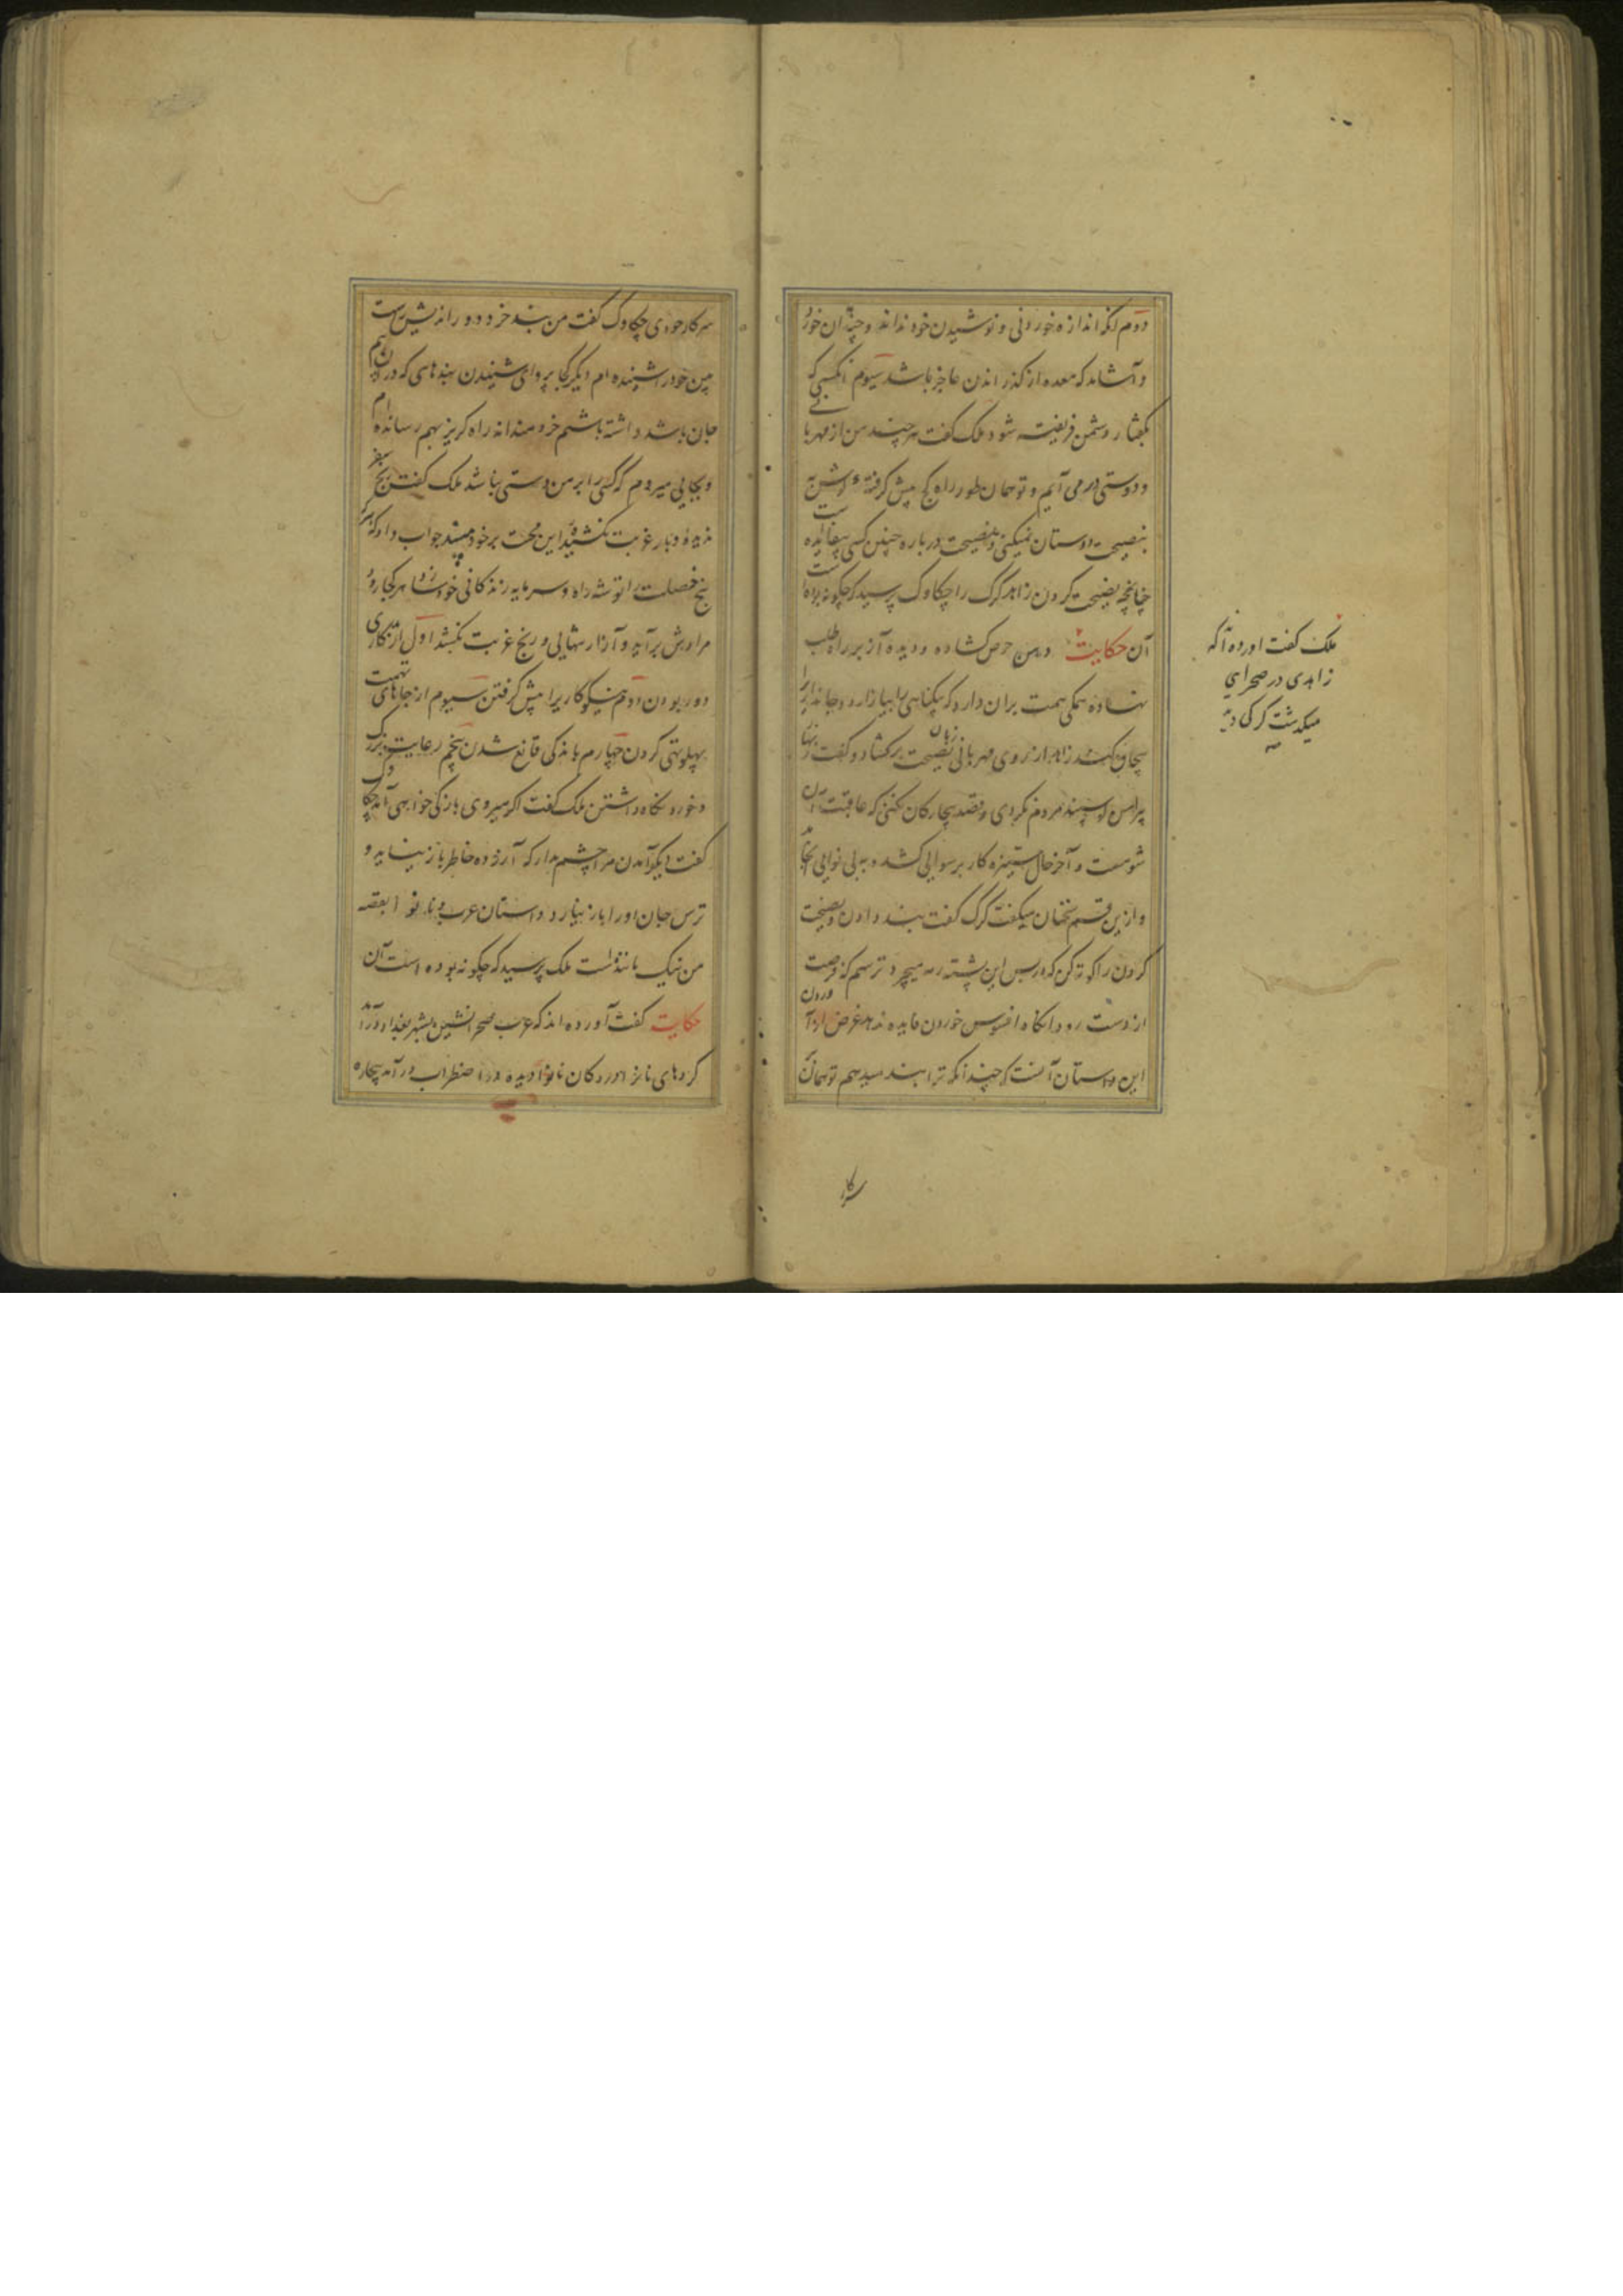 دوم آنکه اندازه خوردنی و نوشیدن خود نداند و چندان خورد
و آشامد که معده از گذراندن عاجز باشد سیوم آنکسی که
بگفتار دشمن فریفته شود ملک گفت هر چند من از مهربانی
و دوستی در می آیم و تو همان طور راه کج پیش گرفته و گوش به
نصیحت دوستان نمیکنی و نصیحت در باره چنین کسی بیفایده است
چنانچه نصیحت کردن زاهد گرگ را چکاوک پرسید که چگونه بوده است
آن حکایت دهن حرص کشاده و دیده آز بر راه طلب
نهاده همگی همت بران دارد که بیگناهی را بیازارد و جانداری را
بیجان کند زاهد از روی مهربانی زبان نصیحت برکشاد و گفت زنهار
پیرامن گوسپند مردم نگردی و قصد بیچارگان نکنی که عاقبت آن
شومست و آخر حال ستیزه کار برسوایی کشد و به بی نوایی انجامد
و ازین قسم سخنان میگفت گرگ گفت پند دادن و نصیحت
کردن را کوته کن که در پس این پشته رمه میچرد ترسم که فرصت
از دست رود آنگاه افسوس خوردن فایده ندهد غرض از آوردن
این داستان آنست که چندانکه ترا پند میدهم تو همان
سرکار
ملک گفت آورده اند که
زاهدی در صحرایی
میگذشت گرگی دید
که
سرکار خودی چکاوک گفت من پند خرد دوراندیش است
من خود را شنیده ام دیگر کجا پروای شنیدن پندهای که در آن بیم
جان باشد داشته باشم خردمندانه راه گریز بهم رسانده ام
و بجایی میروم که کسی را بر من دستی نباشد ملک گفت رنج سفر
ندیده و بار غربت نکشیده این محنت بر خود مپسند جواب داد که هر که
پنج خصلت را توشه راه و سرمایه زندگانی خود سازد هر کجا رود
مرادش برآید و آزار تنهایی و رنج غربت نکشد اول از بدکاری
دور بودن دوم نیکوکاری را پیش گرفتن سیوم از جاهای تهمت
پهلو تهی کردن چهارم باندکی قانع شدن پنجم رعایت بزرگ
و خورد نگاه داشتن ملک گفت اگر میروی باز کی خواهی آمد چکاوک
گفت دیگر آمدن مرا چشم مدار که آزرده خاطر باز نیاید و
ترس جان او را باز نیارد داستان عرب و نانوا بقصه
من نیک مانند است ملک پرسید که چگونه بوده است آن
حکایت گفت آورده اند که عرب صحرانشین بشهر بغداد درآمد
گردهای نان در دکان نانوا دیده در اضطراب درآمد بیچاره